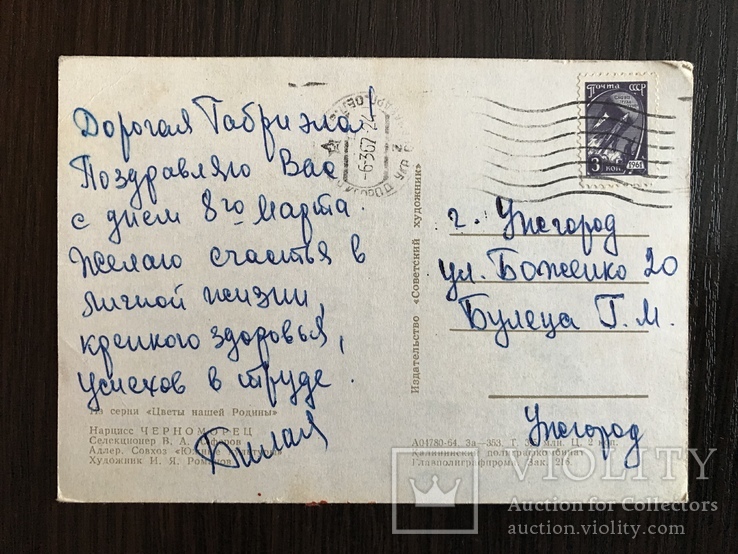 Дорогая Габриэла!
Поздравляю Вас
с днем 8го Марта.
Желаю счастья в
личной жизни,
крепкого здоровья,
успехов в труде.
Из серии «Цветы нашей Родины»
Нарцисс ЧЕРНОМОРЕЦ
Селекционер В. А.
Адлер. Совхоз «Южные культуры»
Художник И. Я. Романов
Издательство «Советский художник»
Почта СССР
3 коп
1961
-6-3 67-24
г. Ужгород
ул. Боженко 20
Булеца Г. М.
Ужгород
А04780-64. За—353. Т. млн. Ц. 2 коп.
Калининский полиграфкомбинат
Главполиграфпрома. Зак. 216.
VIOLITY
Auction for Collectors
auction.violity.com